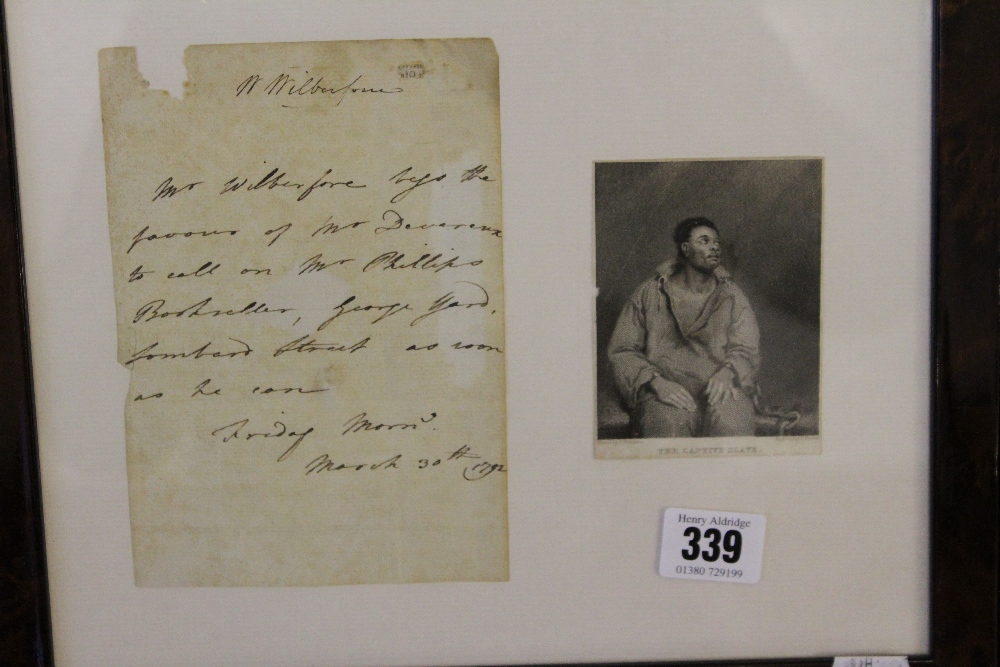 W Wilberforce
Mr Wilberforce begs the
favour of Mr Devereux
to call on Mr Phillips
Bookseller, George Yard,
Lombard Street as soon
as he can
Friday Morng.
March 30th 1792
THE CAPTIVE SLAVE.
Henry Aldridge
339
01380 729199